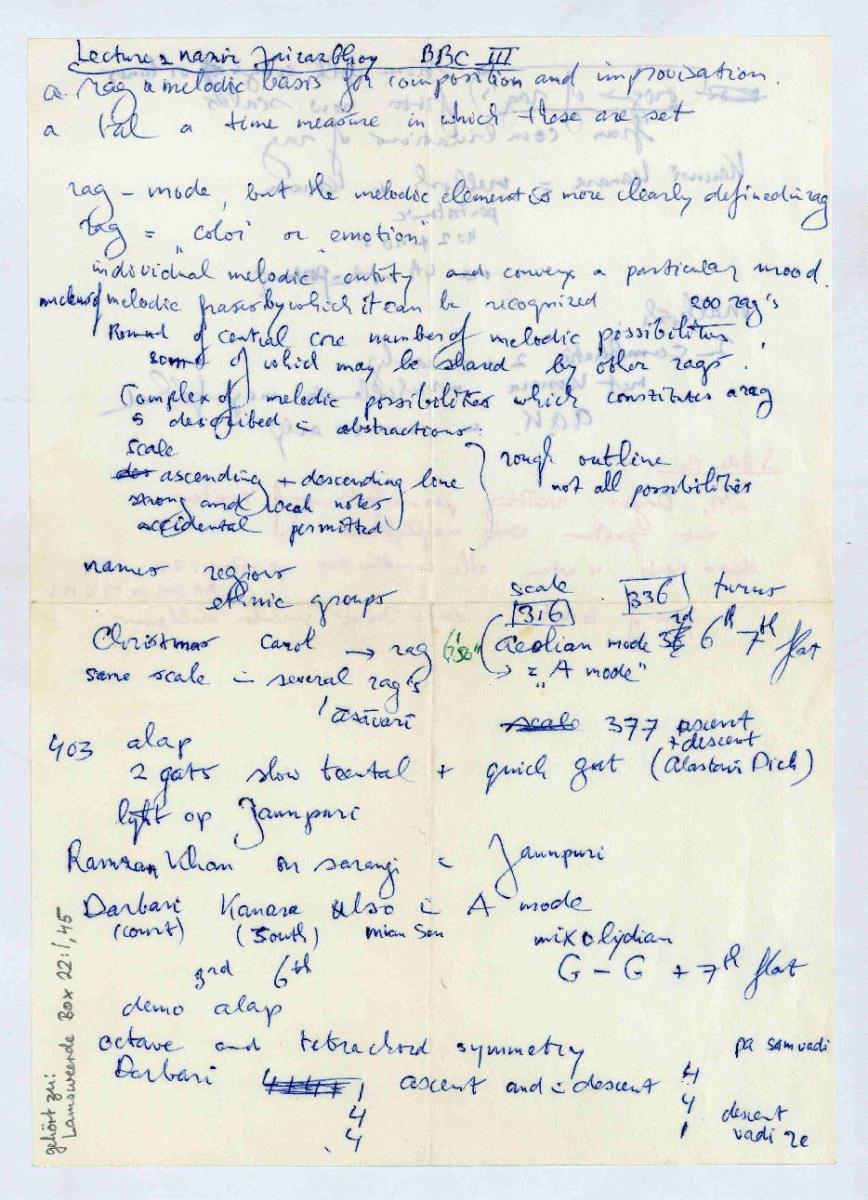 Lecture 2 Nazir Jairazbhoy BBC III
a rag a melodic basis for composition and improvisation.
a tal a time measure in which these are set
rag – mode, but the melodic element is more clearly defined in rag
rag = "color or emotion"
individual melodic entity and conveys a particular mood.
nucleus of melodic frases by which it can be recognized 200 rag's
Round of central core number of melodic possibilities
some of which may be shared by other rags.
Complex of melodic possibilities which constitutes a rag
is described in abstractions:
scale
ascending + descending line
strong and weak notes
accidental permitted
rough outline
not all possibilities
names regions
ethnic groups
scale 316 336 turns
Christmas Carol → rag (aeolian mode 3rd 6th 7th flat
→ = "A mode"
same scale in several rag's
āsāvarī
scale 377 ascent
+ descent
403 alap
2 gats slow teental + quick gat (Alastair Dick)
light op Jaunpuri
Ramzan Khan on sarangi = Jaunpuri
Darbari Kanara also in A mode
(court) (South) mian Sen
mixolydian
3rd 6th G – G + 7th flat
demo alap
octave and tetrachord symmetry pa samvadi
Darbari 1 ascent and descent 4
4 4 descent
4 1 vadi re
gehört zu:
Lamsweerde Box 22:1,45